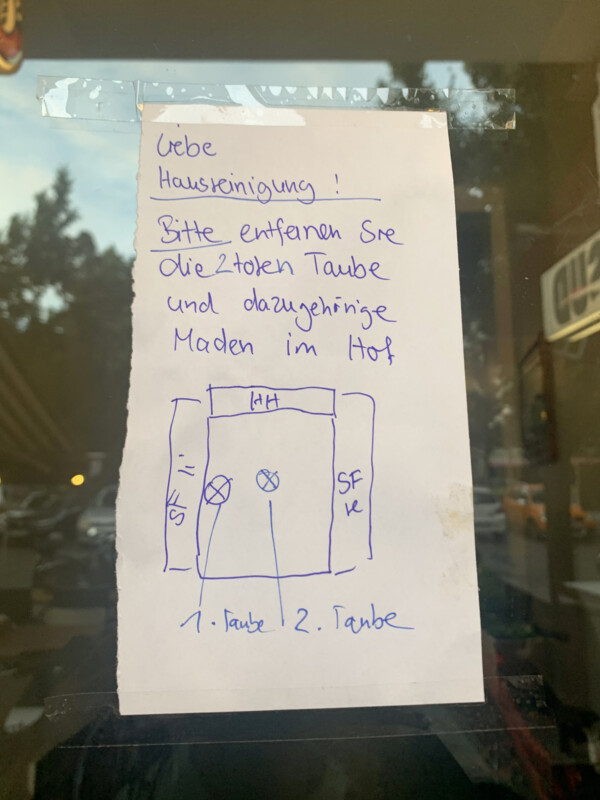 Liebe
Hausreinigung !
Bitte entfernen Sie
die 2 toten Taube
und dazugehörige
Maden im Hof
HH
SF li
SF re
1. Taube
2. Taube